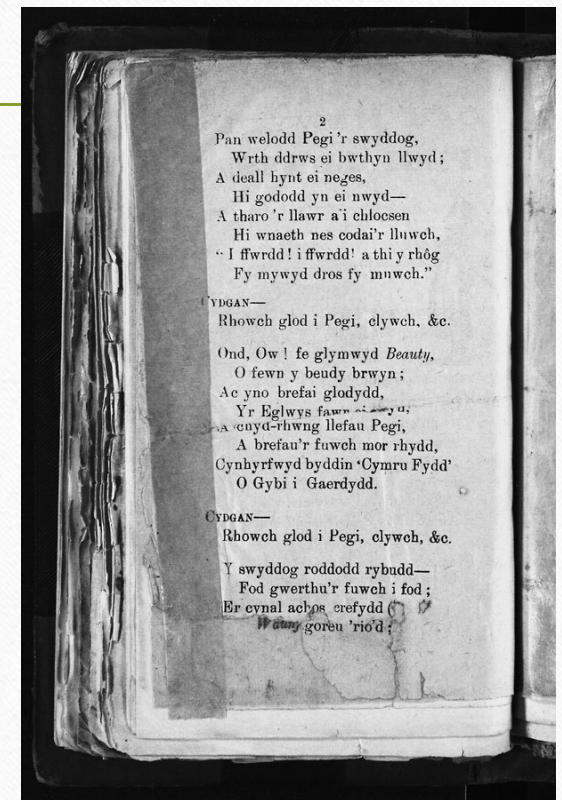 2
Pan welodd Pegi 'r swyddog,
Wrth ddrws ei bwthyn llwyd;
A deall hynt ei neges,
Hi gododd yn ei nwyd—
A tharo 'r llawr a'i chlocsen
Hi wnaeth nes codai'r lluwch,
“I ffwrdd! i ffwrdd! a thi y rhôg
Fy mywyd dros fy muwch.”
CYDGAN—
Rhowch glod i Pegi, clywch, &c.
Ond, Ow! fe glymwyd Beauty,
O fewn y beudy brwyn;
Ac yno brefai glodydd,
Yr Eglwys fawr
A cnyd-rhwng llefau Pegi,
A brefau'r fuwch mor rhydd,
Cynhyrfwyd byddin ‘Cymru Fydd’
O Gybi i Gaerdydd.
CYDGAN—
Rhowch glod i Pegi, clywch, &c.
Y swyddog roddodd rybudd—
Fod gwerthu'r fuwch i fod;
Er cynal achos crefydd
goreu 'rio'd;